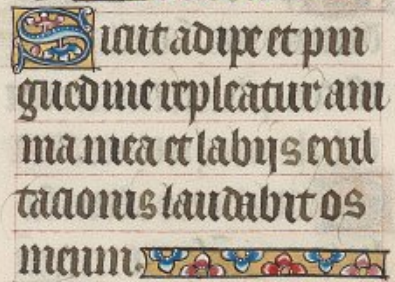 Sicut adipe et pin
guedine repleatur ani
ma mea et labijs exul
tacionis laudabit os
meum.